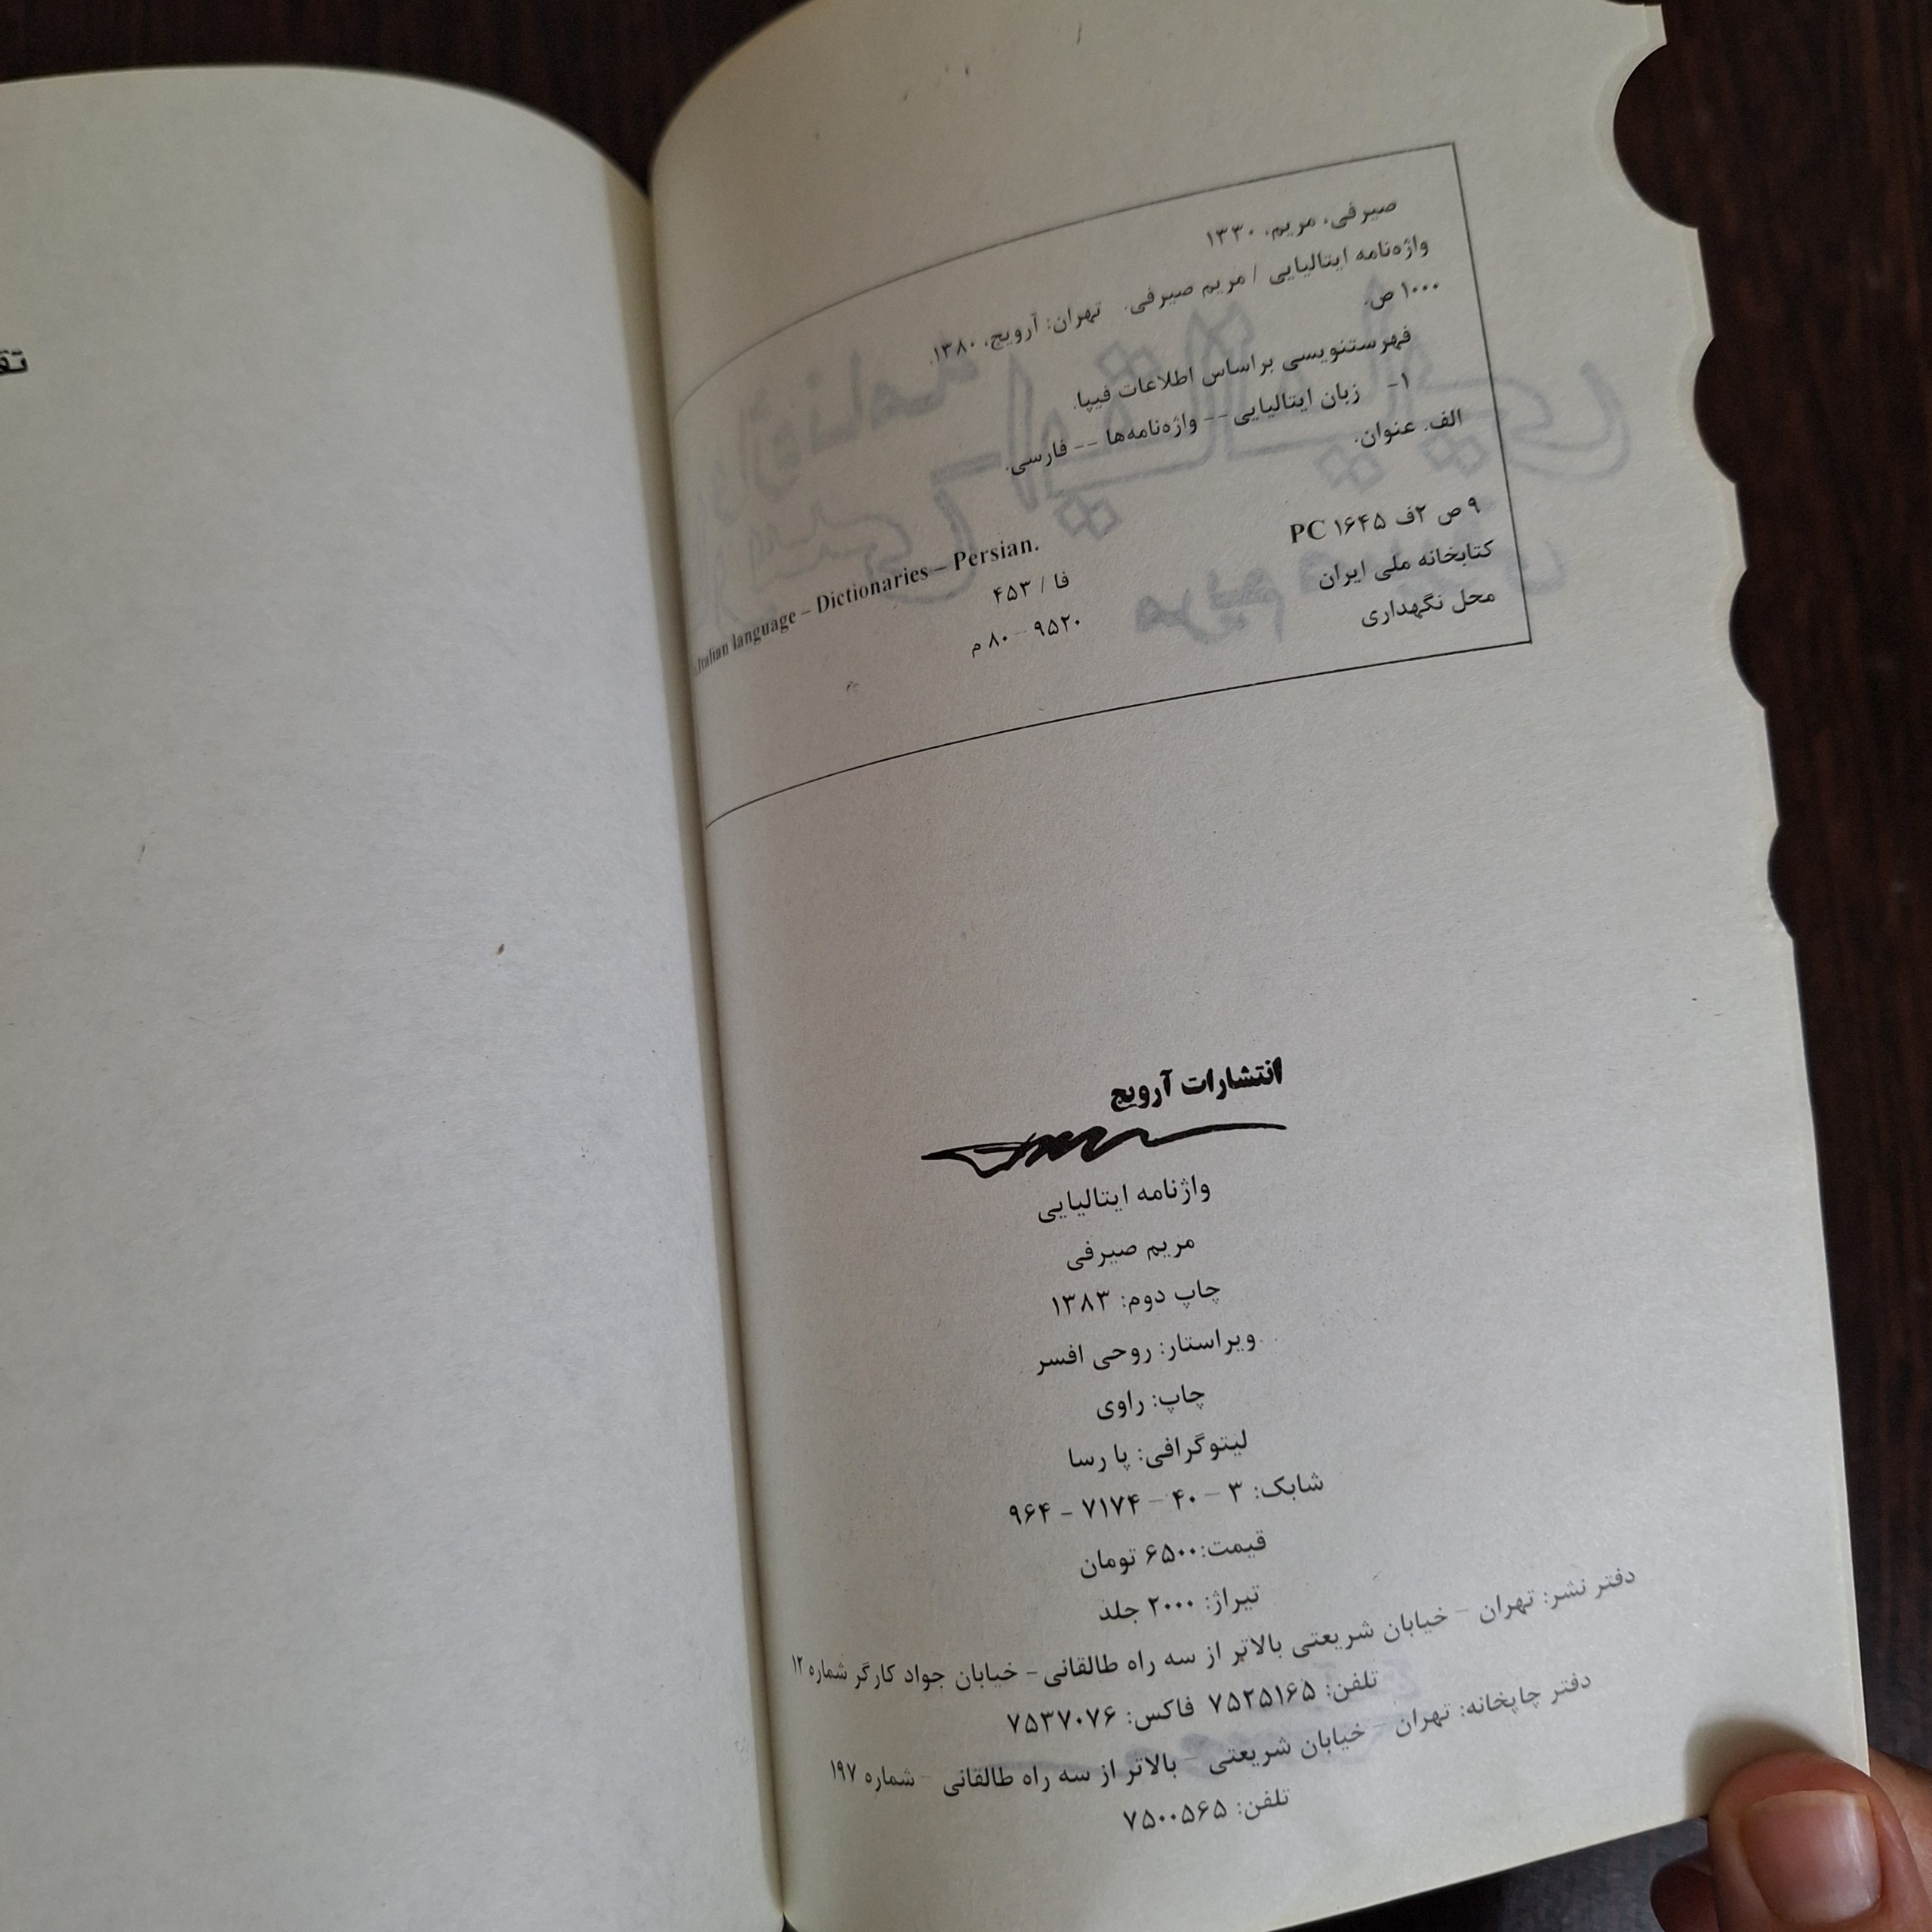 صیرفی، مریم، ۱۳۳۰
واژه‌نامه ایتالیایی / مریم صیرفی. تهران: آرویج، ۱۳۸۰.
۱۰۰۰ ص.
فهرستنویسی براساس اطلاعات فیپا.
۱- زبان ایتالیایی -- واژه‌نامه‌ها -- فارسی.
Italian language – Dictionaries – Persian.
الف. عنوان.
۹ ص ۲ف ۱۶۴۵ PC
فا / ۴۵۳
کتابخانه ملی ایران
۹۵۲۰ – ۸۰ م
محل نگهداری
انتشارات آرویج
واژنامه ایتالیایی
مریم صیرفی
چاپ دوم: ۱۳۸۳
ویراستار: روحی افسر
چاپ: راوی
لیتوگرافی: پا رسا
شابک: ۳ – ۴۰ – ۷۱۷۴ – ۹۶۴
قیمت:۶۵۰۰ تومان
تیراژ: ۲۰۰۰ جلد
دفتر نشر: تهران – خیابان شریعتی بالاتر از سه راه طالقانی – خیابان جواد کارگر شماره ۱۲
تلفن: ۷۵۲۵۱۶۵ فاکس: ۷۵۳۷۰۷۶
دفتر چاپخانه: تهران – خیابان شریعتی – بالاتر از سه راه طالقانی – شماره ۱۹۷
تلفن: ۷۵۰۰۵۶۵